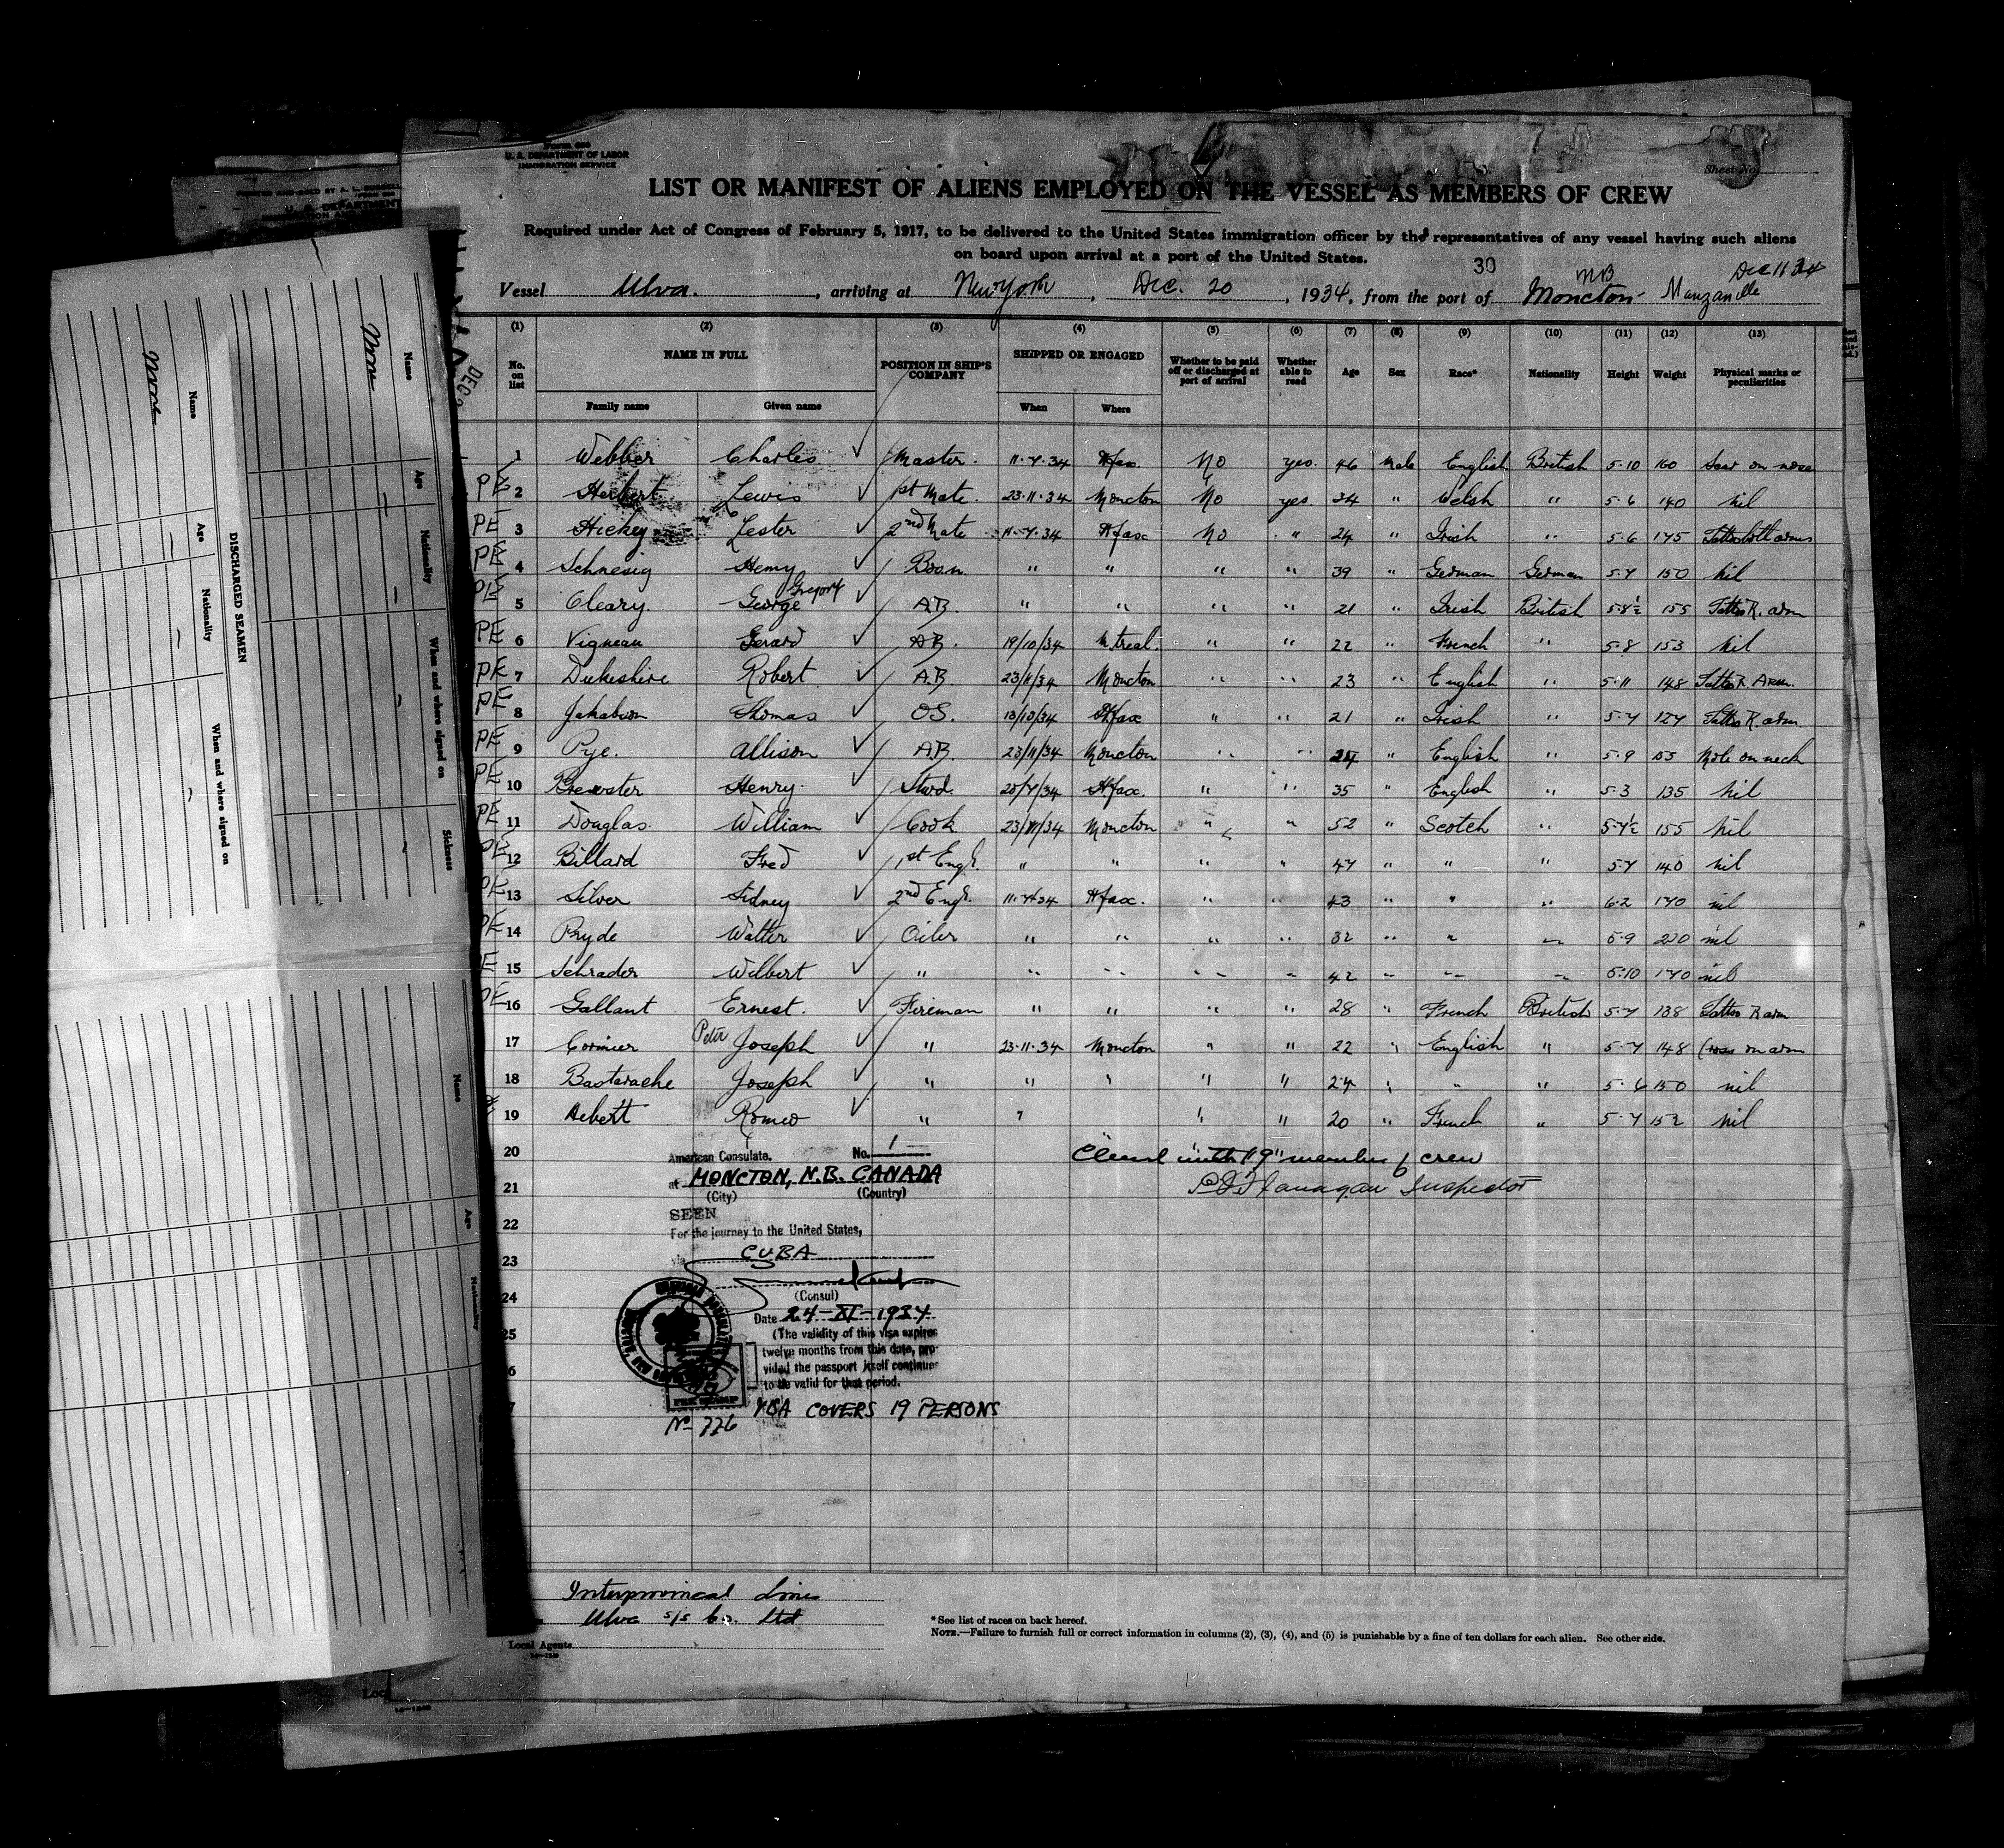 U. S. DEPARTMENT OF LABOR
IMMIGRATION SERVICE
Sheet No.
LIST OR MANIFEST OF ALIENS EMPLOYED ON THE VESSEL AS MEMBERS OF CREW
Required under Act of Congress of February 5, 1917, to be delivered to the United States immigration officer by the representatives of any vessel having such aliens
on board upon arrival at a port of the United States.
30 NB Dec 11 34
Vessel Ulva. , arriving at New York , Dec. 20 , 1934, from the port of Moncton - Manzanillo
(1) (2) (3) (4) (5) (6) (7) (8) (9) (10) (11) (12) (13)
No. on list NAME IN FULL POSITION IN SHIP'S COMPANY SHIPPED OR ENGAGED Whether to be paid off or discharged at port of arrival Whether able to read Age Sex Race* Nationality Height Weight Physical marks or peculiarities
Family name Given name When Where
1 Webber Charles Master. 11-7-34 Hfax No yes. 46 Male English British 5-10 160 Scar on nose
PE 2 Herbert Lewis 1st Mate. 23-11-34 Moncton No yes. 34 " Welsh " 5-6 140 nil
PE 3 Hickey Lester 2nd Mate 11-7-34 Hfax No " 24 " Irish " 5-6 175 Tattoo both arms
PE 4 Schnesig Henry Bosn " " " " 39 " German German 5-7 150 nil
PE 5 Cleary. George Gregory A.B. " " " " 21 " Irish British 5-8½ 155 Tattoo R. arm
PE 6 Vigneau Gerard A.B. 19/10/34 Mtreal. " " 22 " French " 5-8 153 nil
PE 7 Dukeshire Robert A.B. 23/11/34 Moncton " " 23 " English " 5-11 148 Tattoo R. Arm.
PE 8 Thomas OS. 18/10/34 Hfax " " 21 " Irish " 5-7 127 Tattoo R. arm.
PE 9 Pye. Allison A.B. 23/11/34 Moncton " " " English " 5-9 Mole on neck
PE 10 Brewster Henry. Stwd. 20/7/34 Hfax. " " 35 " English " 5-3 135 nil
PE 11 Douglas. William Cook 23/11/34 Moncton " " 52 " Scotch " 5-7½ 155 nil
PE 12 Billard Fred 1st Engr. " " " " 47 " " " 5-7 140 nil
PE 13 Silver Sidney 2nd Engr. 11-7-34 Hfax. " " 43 " " " 6-2 170 nil
PE 14 Pryde Walter Oiler " " " " 32 " " " 5-9 230 nil
PE 15 Schrader Wilbert " " " " " 42 " " " 5-10 170 nil
PE 16 Gallant Ernest. Fireman " " " " 28 " French British 5-7 138 Tattoo R arm
17 Cormier Peter Joseph " 23-11-34 Moncton " " 22 " English " 5-7 148 on arm
18 Bastarache Joseph " " " " " 24 " " " 5-6 150 nil
19 Hebert Romeo " " " " 20 " French " 5-7 152 nil
20 Cleared with "19" members of crew
21 Flanagan Inspector
22
23
24
25
American Consulate, No. 1
at MONCTON, N.B. CANADA
(City) (Country)
SEEN
For the journey to the United States,
via CUBA
(Consul)
Date 24-XI-1934
(The validity of this visa expires
twelve months from this date, pro-
vided the passport itself continues
to be valid for that period.
VISA COVERS 19 PERSONS
No 776
Interprovincial Lines
Ulva S/S Co. Ltd
Local Agents
* See list of races on back hereof.
NOTE.—Failure to furnish full or correct information in columns (2), (3), (4), and (5) is punishable by a fine of ten dollars for each alien. See other side.
DISCHARGED SEAMEN
Name Age Nationality When and where signed on
None
Name Age Nationality When and where signed on Sickness
None
Name Age Nationality